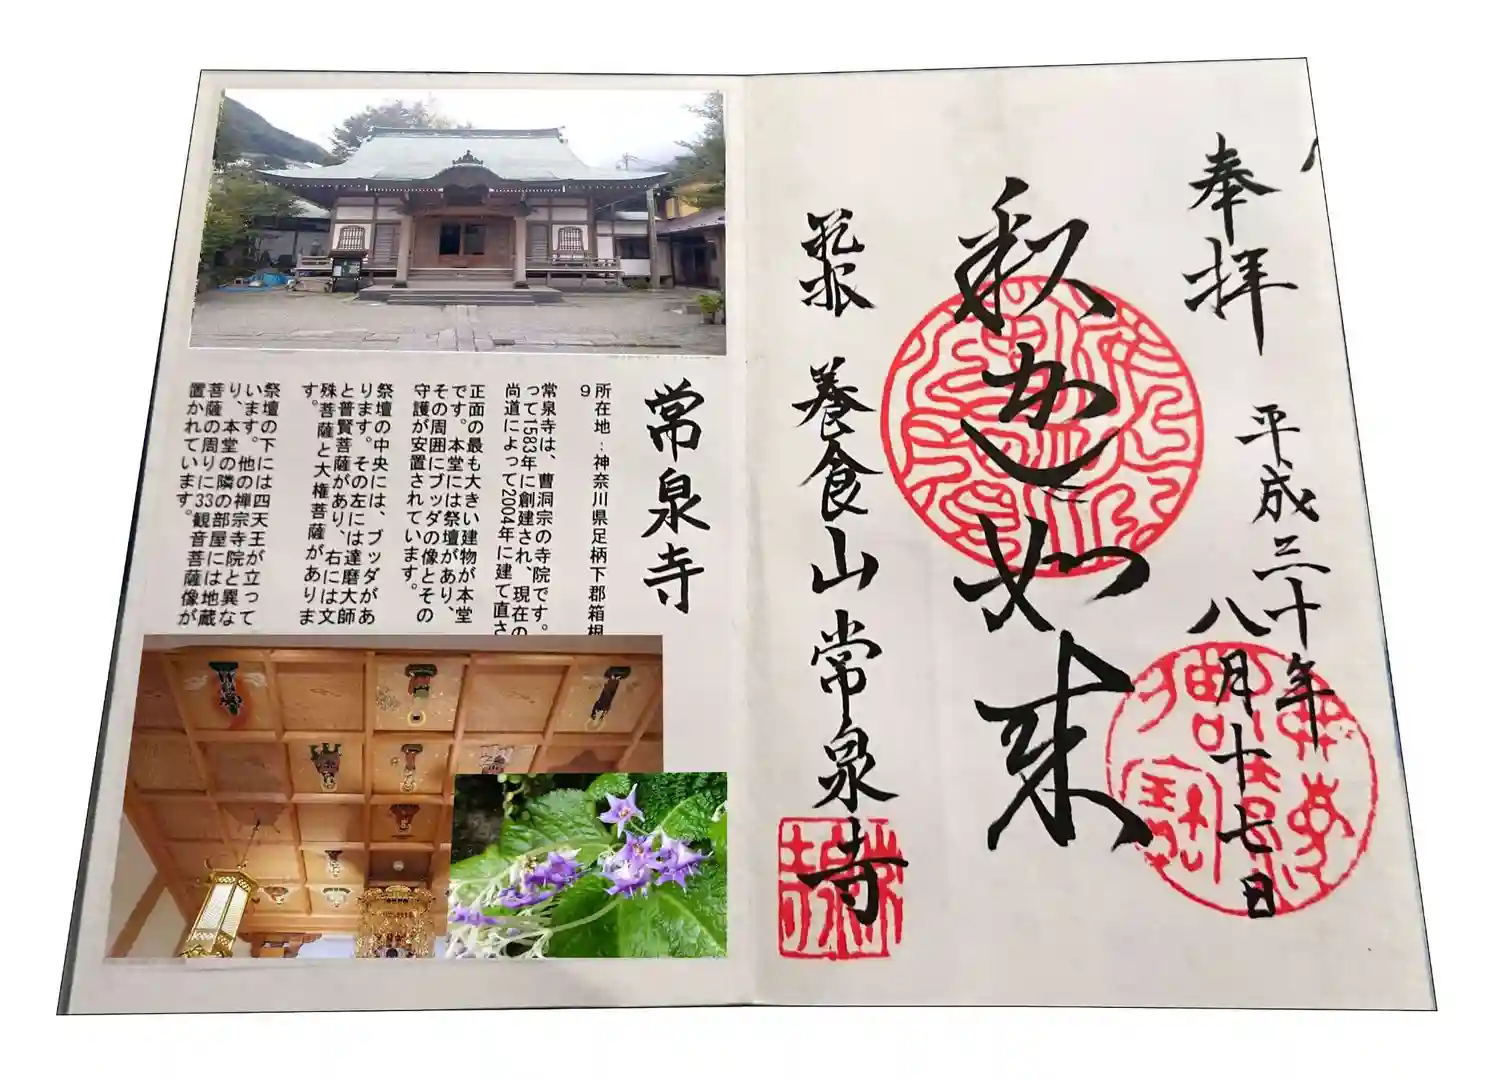 奉拝
平成三十年
八月十七日
釈迦如来
箱根
養食山
常泉寺
常泉寺
所在地:神奈川県足柄下郡箱根
9
常泉寺は、曹洞宗の寺院です。
って1583年に創建され、現在の
尚道によって2004年に建て直さ
正面の最も大きい建物が本堂
です。本堂には祭壇があり、
その周囲にブッダの像とその
守護が安置されています。
祭壇の中央には、ブッダがあ
ります。その左には達磨大師
と普賢菩薩があり、右には文
殊菩薩と大権菩薩がありま
す。
祭壇の下には四天王が立って
います。他の禅宗寺院と異な
り、本堂の隣の部屋には地蔵
菩薩の周りに33観音菩薩像が
置かれています。